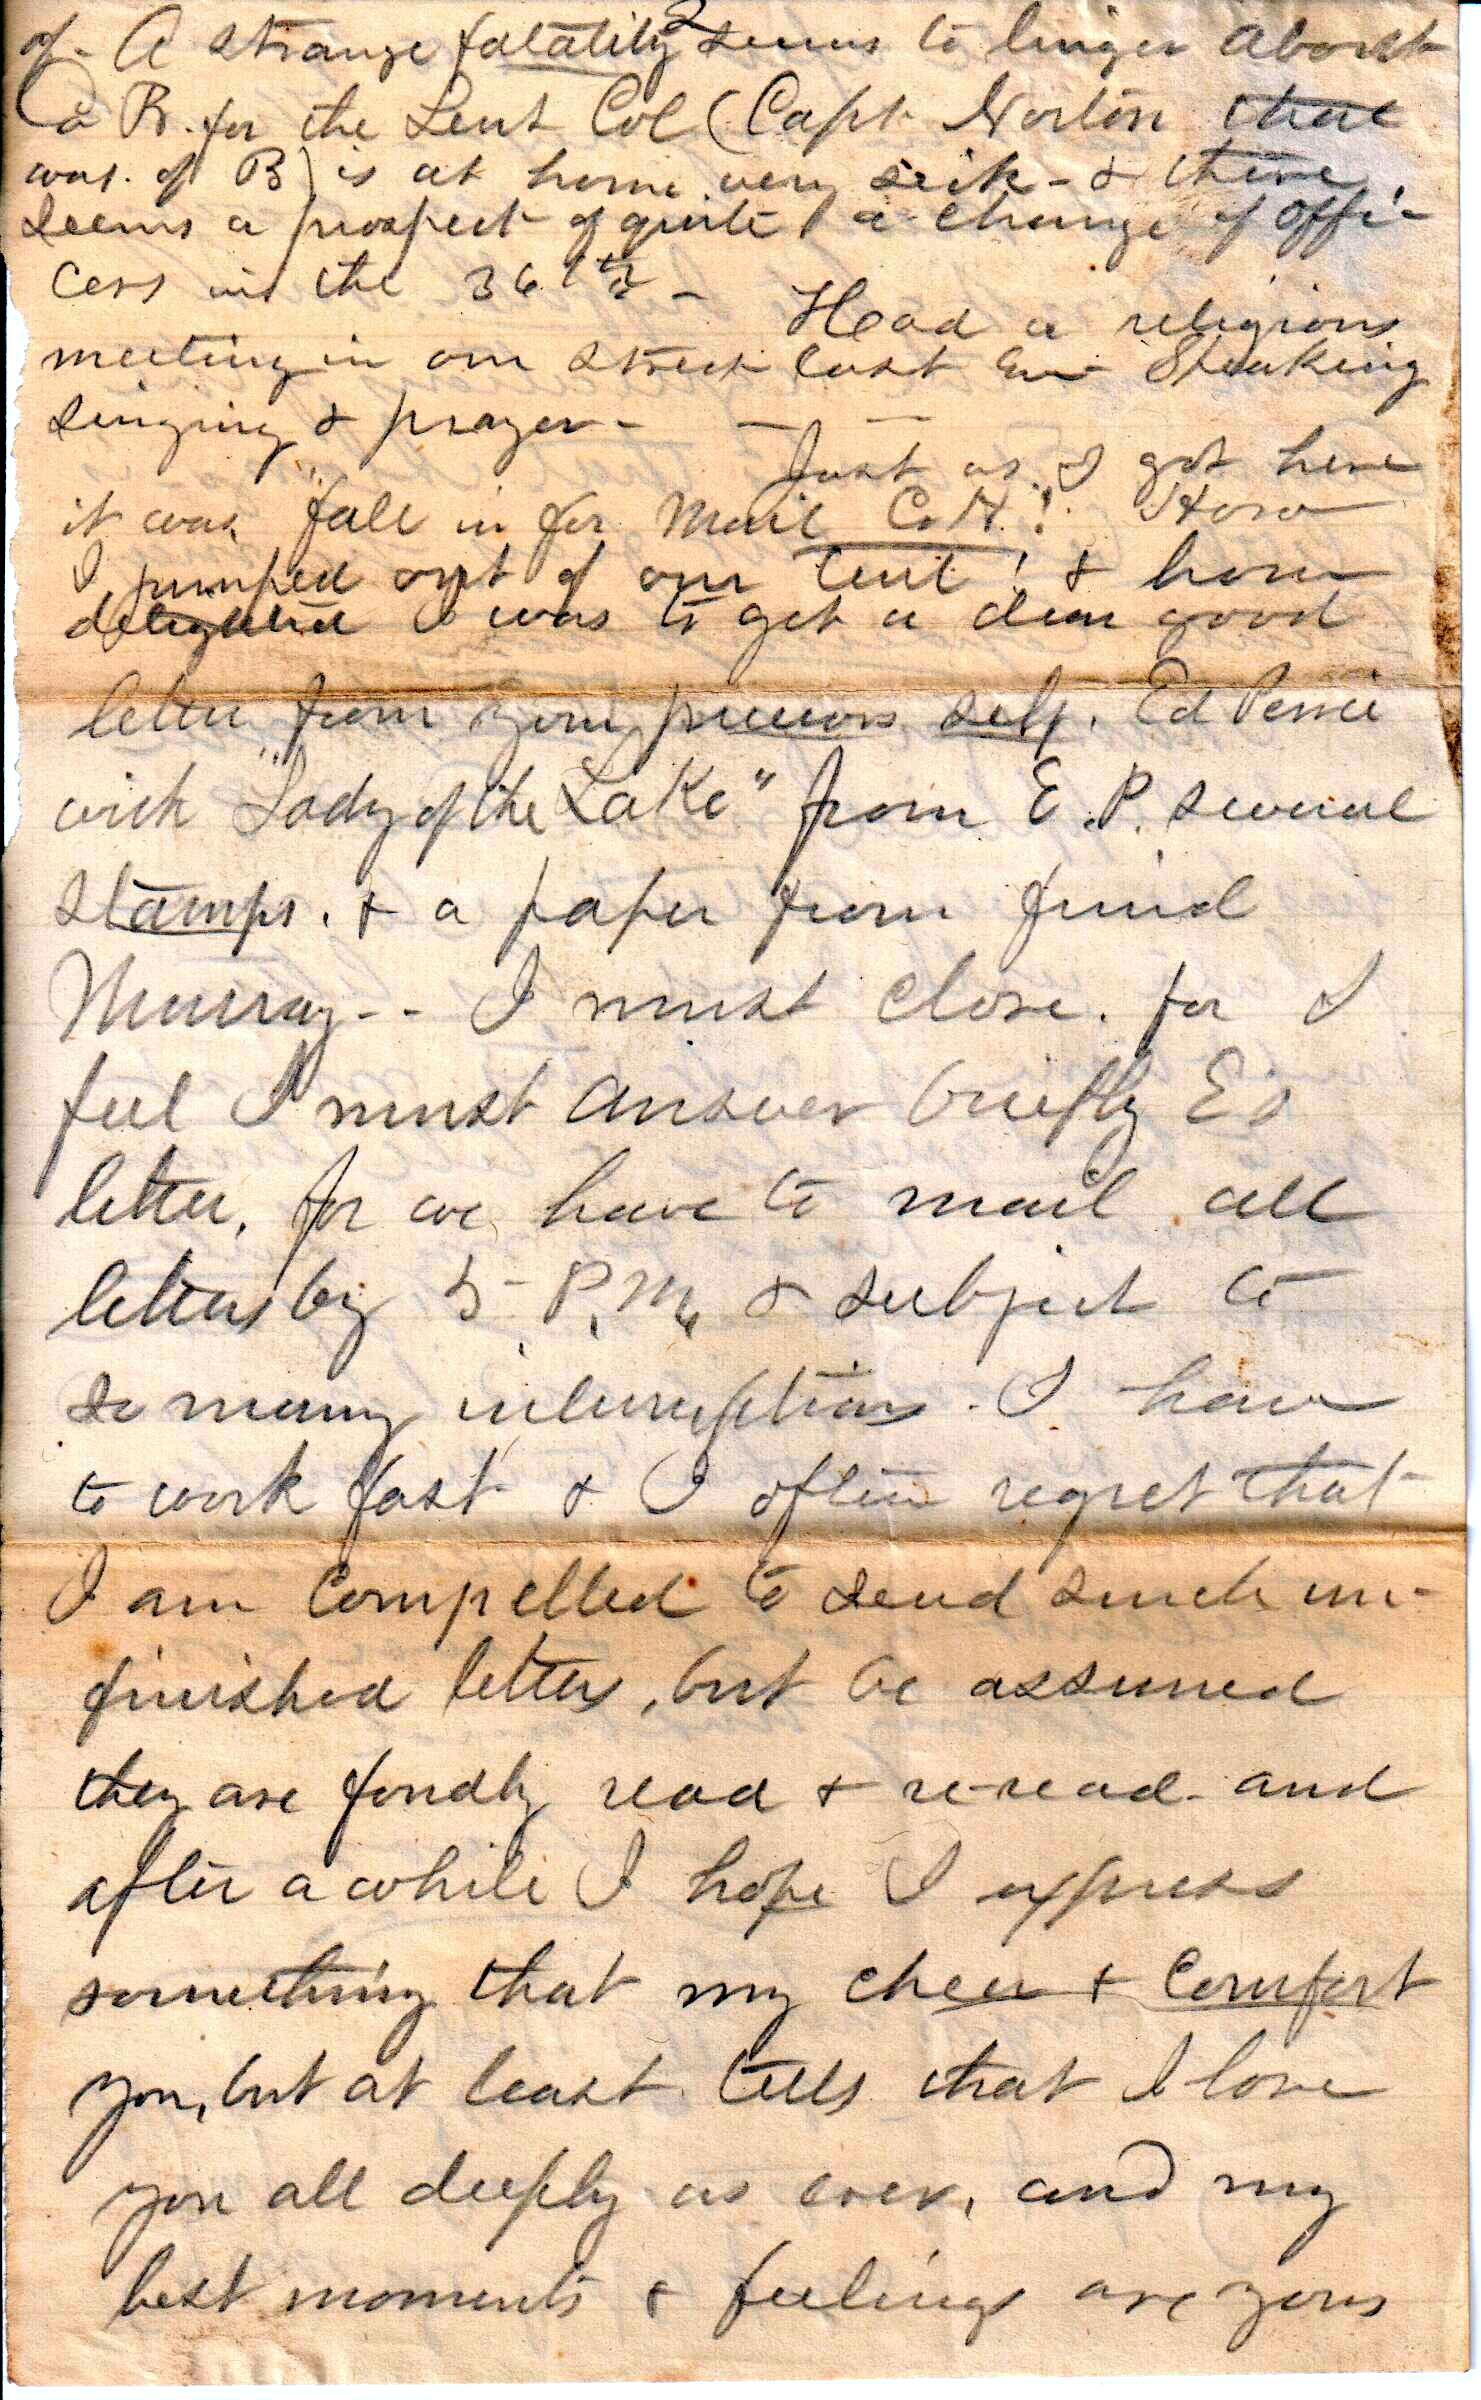 2
of- A strange fatality seems to linger about
Co B. for the Leut Col (Capt Norton that
was. of B) is at home very sick- & there
seems a prospect of quite a change of offi-
cers in the 36th - Had a religious
meeting in our street last Eve Speaking
singing & prayer- — —
Just as I got here
it was "fall in for Mail Co H.! How
I jumped out of our tent! & how
delighted I was to get a dear good
letter from your precious self. Ed
with "Lady of the Lake" from E. P. several
stamps. & a paper from friend
Murray-- I must close. for I
feel I must answer briefly E's
letter, for we have to mail all
letters by 5- P.M. & subject to
so many interruptions. I have
to work fast & I often regret that
I am compelled to send such un-
finished letters, but be assured
they are fondly read & re-read- and
after a while I hope I express
something that my cheer & Comfort
you, but at least tells that I love
you all deeply as ever, and my
best moments & feelings are yours